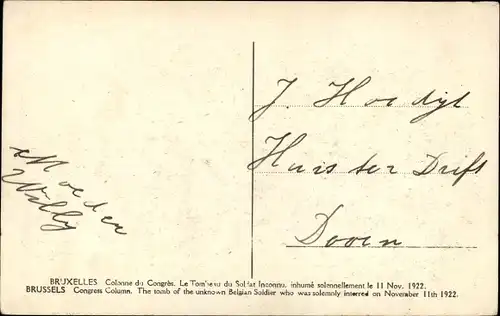 Moeder
Willy
J. Hoedijk
Huis ter Drift
Dooen
BRUXELLES. Colonne du Congrès. Le Tombeau du Soldat Inconnu, inhumé solennellement le 11 Nov. 1922.
BRUSSELS. Congress Column. The tomb of the unknown Belgian Soldier who was solemnly interred on November 11th 1922.